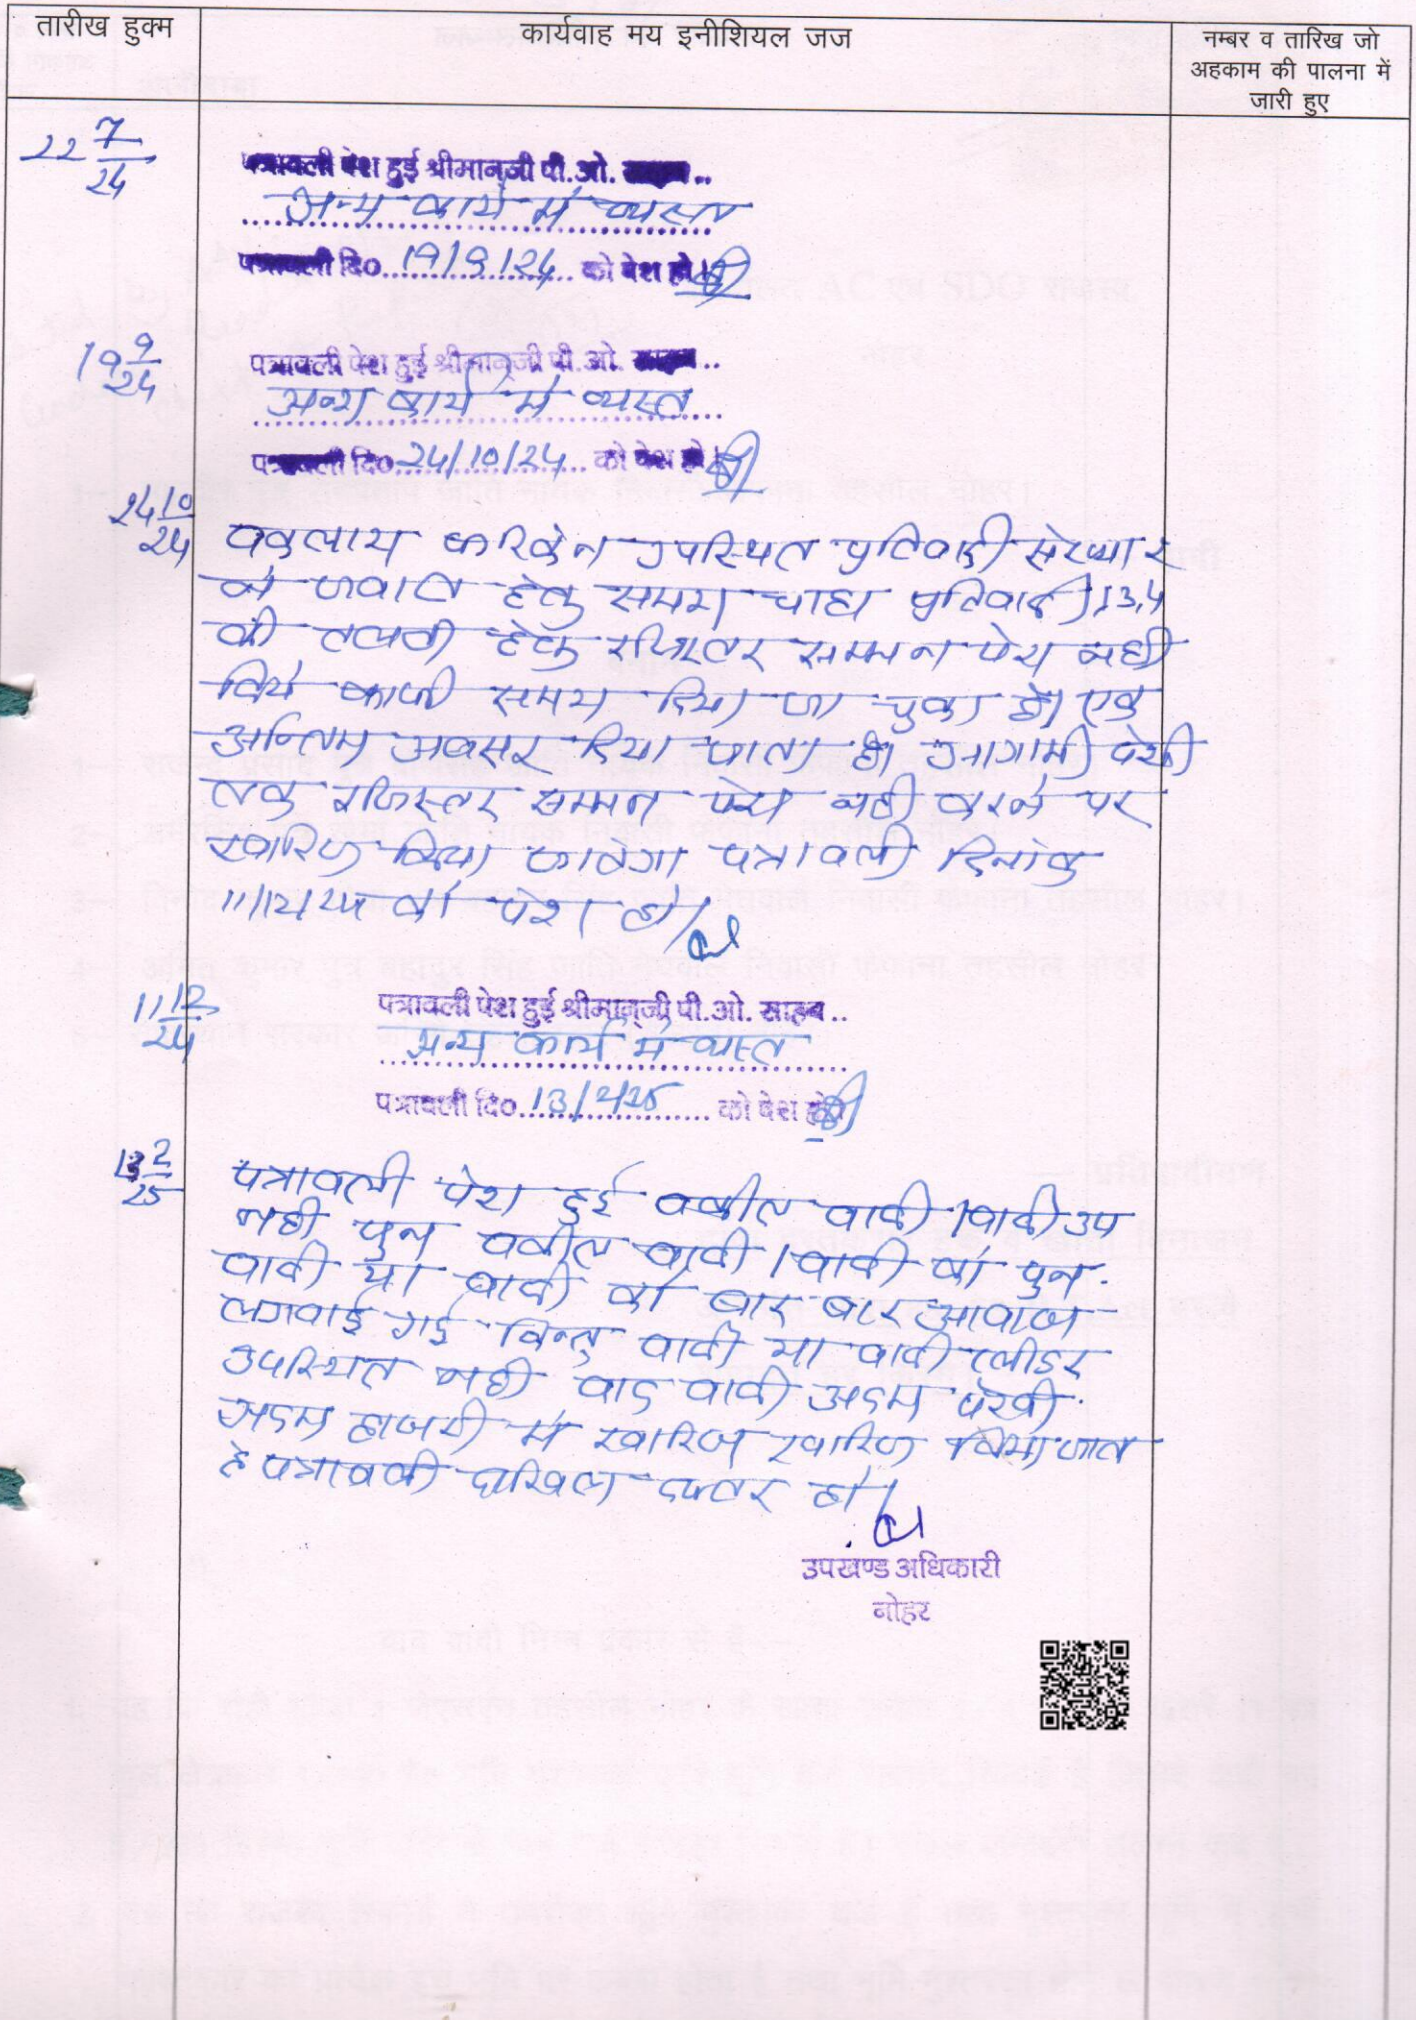 तारीख हुक्म
कार्यवाह मय इनीशियल जज
नम्बर व तारिख जो
अहकाम की पालना में
जारी हुए
22 7/24
पत्रावली पेश हुई श्रीमान्जी पी.ओ. साहब..
अन्य कार्य में व्यस्त
पत्रावली दि० 19/9/24 को पेश हो।
19 9/24
पत्रावली पेश हुई श्रीमान्जी पी.ओ. साहब..
अन्य कार्य में व्यस्त
पत्रावली दि० 24/10/24 को पेश हो।
24 10/24
वकुलाय फरिकेन उपस्थित प्रतिवादी संख्या 2
ने जवाब हेतु समय चाहा प्रतिवादी 1,3,4
की तलबी हेतु रजिस्टर सम्मन पेश नही
किये काफी समय दिया जा चुका है। एक
अन्तिम अवसर दिया जाता है। आगामी पेशी
तक रजिस्टर सम्मन पेश नही करने पर
खारिज किया जावेगा पत्रावली दिनांक
11/12/24 को पेश हो।
11 12/24
पत्रावली पेश हुई श्रीमान्जी पी.ओ. साहब..
अन्य कार्य में व्यस्त
पत्रावली दि० 13/2/25 को पेश हो।
13 2/25
पत्रावली पेश हुई वकील वादी/वादी उप
नही पुन वकील वादी/वादी को पुन.
वादी या वादी को बार बार आवाज
लगवाई गई किन्तु वादी या वादी प्लीडर
उपस्थित नही वाद वादी अदम पेरवी
अदम हाजरी में खारिज खारिज किया जाता
है पत्रावली दाखिल दफ्तर हो।
उपखण्ड अधिकारी
नोहर